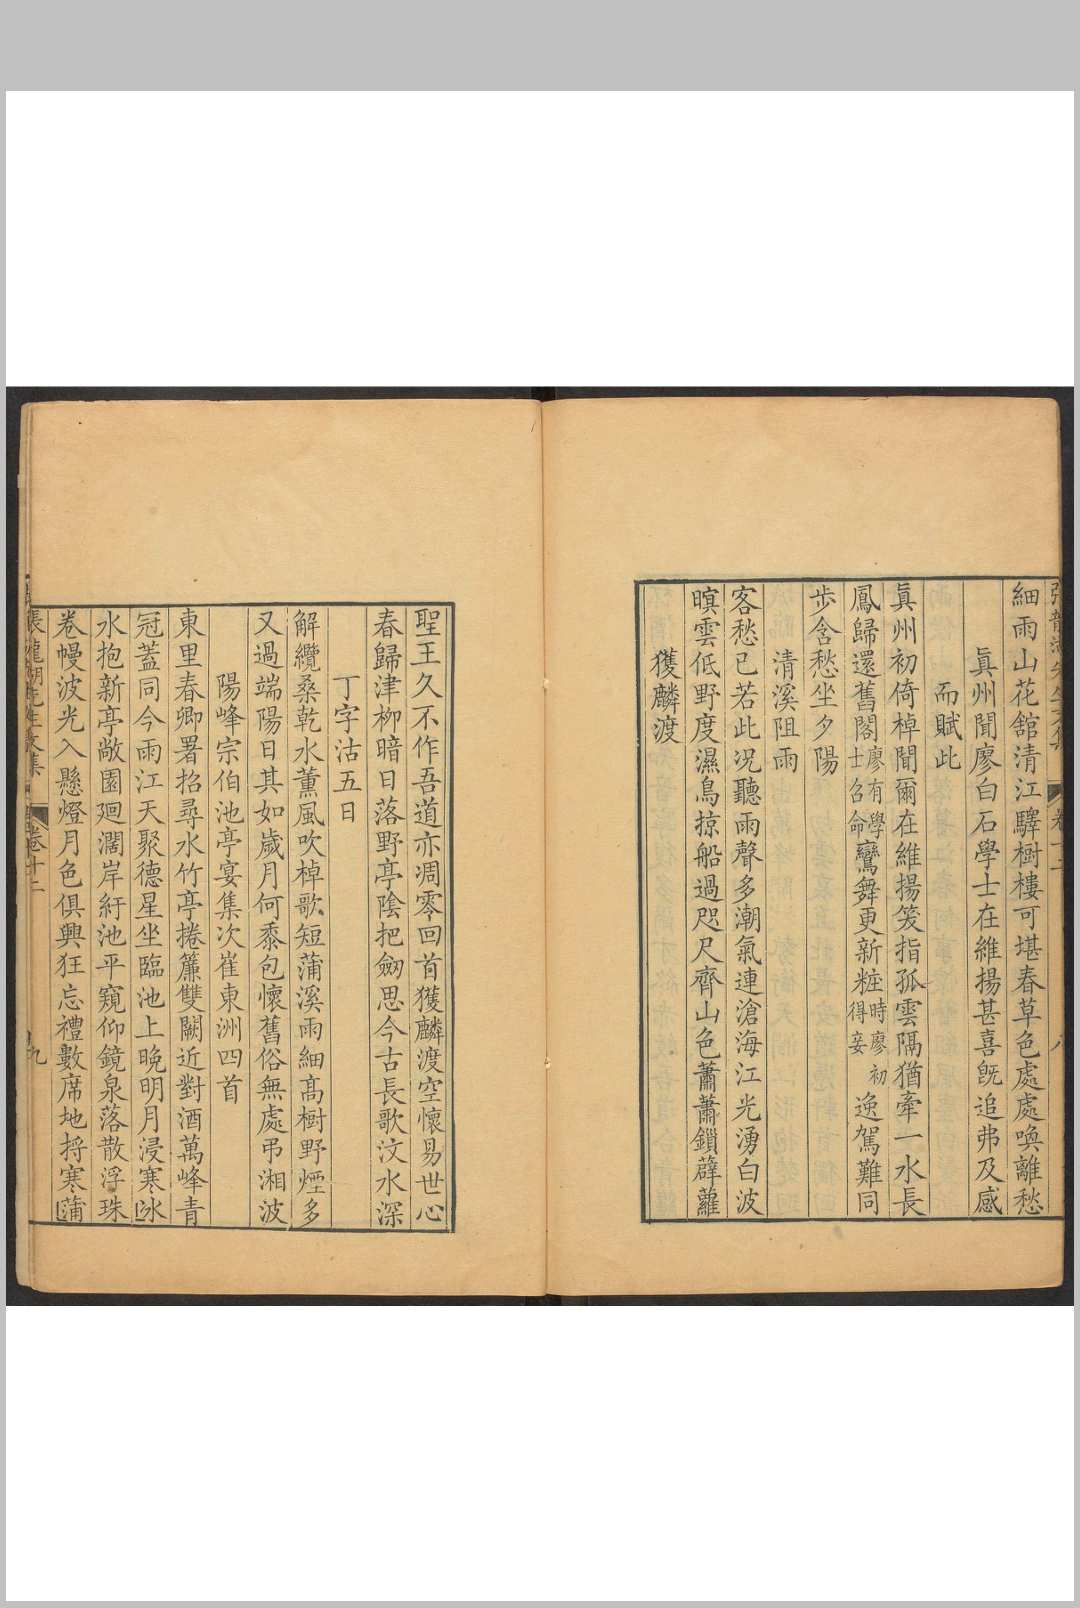 細雨山花舘清江驛樹樓可堪春草色處處喚離愁
真州聞廖白石學士在維揚甚喜旣追弗及感
而賦此
真州初倚棹聞爾在維揚笑指孤雲隔猶牽一水長
鳳歸還舊閣廖有學士召命鸞舞更新粧時廖初得妾逸駕難同
步含愁坐夕陽
清溪阻雨
客愁已若此况聽雨聲多潮氣連滄海江光湧白波
暝雲低野度濕鳥掠船過咫尺齊山色蕭蕭鎖薜蘿
獲麟渡
聖王久不作吾道亦凋零回首獲麟渡空懷易世心
春歸津柳暗日落野亭陰把劔思今古長歌汶水深
丁字沽五日
解纜桑乾水薰風吹棹歌短蒲溪雨細高樹野煙多
又過端陽日其如歲月何黍包懷舊俗無處弔湘波
陽峰宗伯池亭宴集次崔東洲四首
東里春卿署招尋水竹亭捲簾雙闕近對酒萬峰青
冠蓋同今雨江天聚德星坐臨池上晚明月浸寒冰
水抱新亭敞園廻濶岸紆池平窺仰鏡泉落散浮珠
卷幔波光入懸燈月色俱興狂忘禮數席地捋寒蒲
張龍湖先生文集 卷十二 九